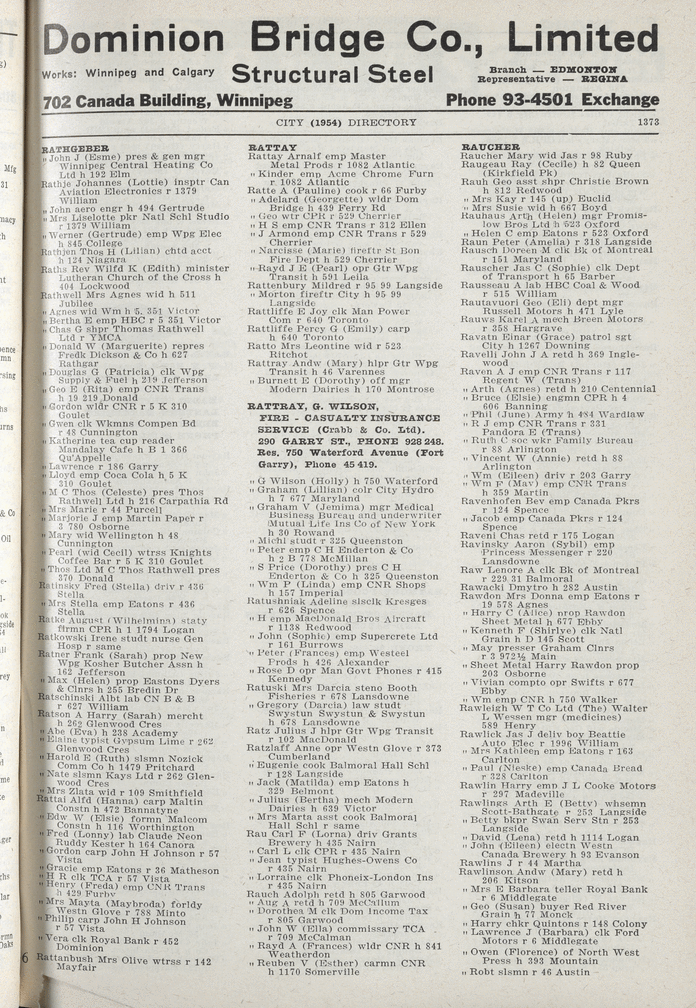 Dominion Bridge Co., Limited
Works: Winnipeg and Calgary Structural Steel Branch — EDMONTON
Representative — REGINA
702 Canada Building, Winnipeg Phone 93-4501 Exchange
CITY (1954) DIRECTORY 1373
RATHGEBER
" John J (Esme) pres & gen mgr
Winnipeg Central Heating Co
Ltd h 192 Elm
Rathje Johannes (Lottie) insptr Can
Aviation Electronics r 1379
William
" John aero engr h 494 Gertrude
" Mrs Liselotte pkr Natl Schl Studio
r 1379 William
" Werner (Gertrude) emp Wpg Elec
h 845 College
Rathjen Thos H (Lilian) chtd acct
h 124 Niagara
Raths Rev Wilfd K (Edith) minister
Lutheran Church of the Cross h
404 Lockwood
Rathwell Mrs Agnes wid h 511
Jubilee
" Agnes wid Wm h 5, 351 Victor
" Bertha E emp HBC r 5 351 Victor
" Chas G shpr Thomas Rathwell
Ltd r YMCA
" Donald W (Marguerite) repres
Fredk Dickson & Co h 627
Rathgar
" Douglas G (Patricia) clk Wpg
Supply & Fuel h 219 Jefferson
" Geo E (Rita) emp CNR Trans
h 19 219 Donald
" Gordon wldr CNR r 5 K 310
Goulet
" Gwen clk Wkmns Compen Bd
r 48 Cunnington
" Katherine tea cup reader
Mandalay Cafe h B 1 366
Qu'Appelle
" Lawrence r 186 Garry
" Lloyd emp Coca Cola h 5 K
310 Goulet
" M C Thos (Celeste) pres Thos
Rathwell Ltd h 216 Carpathia Rd
" Mrs Marie r 44 Purcell
" Marjorie J emp Martin Paper r
3 780 Osborne
" Mary wid Wellington h 48
Cunnington
" Pearl (wid Cecil) wtrss Knights
Coffee Bar r 5 K 310 Goulet
" Thos Ltd M C Thos Rathwell pres
370 Donald
Ratinsky Fred (Stella) driv r 436
Stella
" Mrs Stella emp Eatons r 436
Stella
Ratke August (Wilhelmina) staty
ffrmn CPR h 1 1794 Logan
Ratkowski Irene studt nurse Gen
Hosp r same
Ratner Frank (Sarah) prop New
Wpg Kosher Butcher Assn h
162 Jefferson
" Max (Helen) prop Eastons Dyers
& Clnrs h 255 Bredin Dr
Ratschinski Albt lab CN B & B
r 627 William
Ratson A Harry (Sarah) mercht
h 262 Glenwood Cres
" Abe (Eva) h 238 Academy
" Elaine typist Gypsum Lime r 262
Glenwood Cres
" Harold E (Ruth) slsmn Nozick
Comm Co h 1479 Pritchard
" Nate slsmn Kays Ltd r 262 Glen-
wood Cres
" Mrs Zlata wid r 109 Smithfield
Rattai Alfd (Hanna) carp Maltin
Constn h 472 Bannatyne
" Edw W (Elsie) formn Malcom
Constn h 116 Worthington
" Fred (Lonny) lab Claude Neon
Ruddy Kester h 164 Canora
" Gordon carp John H Johnson r 57
Vista
" Gracie emp Eatons r 36 Matheson
" H R clk TCA r 57 Vista
" Henry (Freda) emp CNR Trans
h 429 Furby
" Mrs Mayta (Maybroda) forldy
Westn Glove r 788 Minto
" Philip carp John H Johnson
r 57 Vista
" Vera clk Royal Bank r 452
Dominion
Rattanbush Mrs Olive wtrss r 142
Mayfair
RATTAY
Rattay Arnalf emp Master
Metal Prods r 1082 Atlantic
" Kinder emp Acme Chrome Furn
r 1082 Atlantic
Ratte A (Pauline) cook r 66 Furby
" Adelard (Georgette) wldr Dom
Bridge h 439 Ferry Rd
" Geo wtr CPR r 529 Cherrier
" H S emp CNR Trans r 312 Ellen
" J Armond emp CNR Trans r 529
Cherrier
" Narcisse (Marie) fireftr St Bon
Fire Dept h 529 Cherrier
" Rayd J E (Pearl) opr Gtr Wpg
Transit h 591 Leila
Rattenbury Mildred r 95 99 Langside
" Morton fireftr City h 95 99
Langside
Rattliffe E Joy clk Man Power
Com r 640 Toronto
Rattliffe Percy G (Emily) carp
h 640 Toronto
Ratto Mrs Leontine wid r 523
Ritchot
Rattray Andw (Mary) hlpr Gtr Wpg
Transit h 46 Varennes
" Burnett E (Dorothy) off mgr
Modern Dairies h 170 Montrose
RATTRAY, G. WILSON,
FIRE - CASUALTY INSURANCE
SERVICE (Crabb & Co. Ltd).
290 GARRY ST., PHONE 928 248.
Res. 750 Waterford Avenue (Fort
Garry), Phone 45 419.
" G Wilson (Holly) h 750 Waterford
" Graham (Lillian) colr City Hydro
h 7 677 Maryland
" Graham V (Jemima) mgr Medical
Business Bureau and underwriter
Mutual Life Ins Co of New York
h 30 Rowand
" Michl studt r 325 Queenston
" Peter emp C H Enderton & Co
h 2 B 778 McMillan
" S Price (Dorothy) pres C H
Enderton & Co h 325 Queenston
" Wm P (Linda) emp CNR Shops
h 157 Imperial
Ratushniak Adeline slsclk Kresges
r 626 Spence
" H emp MacDonald Bros Aircraft
r 1138 Redwood
" John (Sophie) emp Supercrete Ltd
r 161 Burrows
" Peter (Frances) emp Westeel
Prods h 426 Alexander
" Rose D opr Man Govt Phones r 415
Kennedy
Ratuski Mrs Darcia steno Booth
Fisheries r 678 Lansdowne
" Gregory (Darcia) law studt
Swystun Swystun & Swystun
h 678 Lansdowne
Ratz Julius J hlpr Gtr Wpg Transit
r 102 MacDonald
Ratzlaff Anne opr Westn Glove r 373
Cumberland
" Eugenie cook Balmoral Hall Schl
r 128 Langside
" Jack (Matilda) emp Eatons h
329 Belmont
" Julius (Bertha) mech Modern
Dairies h 639 Victor
" Mrs Marta asst cook Balmoral
Hall Schl r same
Rau Carl F (Lorna) driv Grants
Brewery h 435 Nairn
" Carl L clk CPR r 435 Nairn
" Jean typist Hughes-Owens Co
r 435 Nairn
" Lorraine clk Phoneix-London Ins
r 435 Nairn
Rauch Adolph retd h 805 Garwood
" Aug A retd h 709 McCallum
" Dorothea M clk Dom Income Tax
r 805 Garwood
" John W (Ella) commissary TCA
r 709 McCalman
" Rayd A (Frances) wldr CNR h 841
Weatherdon
" Reuben V (Esther) carmn CNR
h 1170 Somerville
RAUCHER
Raucher Mary wid Jas r 98 Ruby
Raugeau Ray (Cecile) h 82 Queen
(Kirkfield Pk)
Rauh Geo asst shpr Christie Brown
h 812 Redwood
" Mrs Kay r 145 (up) Euclid
" Mrs Susie wid h 667 Boyd
Rauhaus Arth (Helen) mgr Promis-
low Bros Ltd h 523 Oxford
" Helen C emp Eatons r 523 Oxford
Raun Peter (Amelia) r 318 Langside
Rausch Doreen M clk Bk of Montreal
r 151 Maryland
Rauscher Jas C (Sophie) clk Dept
of Transport h 65 Barber
Rausseau A lab HBC Coal & Wood
r 515 William
Rautavuori Geo (Eli) dept mgr
Russell Motors h 471 Lyle
Rauws Karel A mech Breen Motors
r 358 Hargrave
Ravatn Einar (Grace) patrol sgt
City h 1267 Downing
Ravelli John J A retd h 369 Ingle-
wood
Raven A J emp CNR Trans r 117
Regent W (Trans)
" Arth (Agnes) retd h 210 Centennial
" Bruce (Elsie) engmn CPR h 4
606 Banning
" Phil (June) Army h 484 Wardlaw
" R J emp CNR Trans r 331
Pandora E (Trans)
" Ruth C soc wkr Family Bureau
r 88 Arlington
" Vincent W (Annie) retd h 88
Arlington
" Wm (Eileen) driv r 203 Garry
" Wm F (May) emp CNR Trans
h 359 Martin
Ravenhofen Bev emp Canada Pkrs
r 124 Spence
" Jacob emp Canada Pkrs r 124
Spence
Raveni Chas retd r 175 Logan
Ravinsky Aaron (Sybil) emp
Princess Messenger r 220
Lansdowne
Raw Lenore A clk Bk of Montreal
r 229 31 Balmoral
Rawacki Dmytro h 282 Austin
Rawdon Mrs Donna emp Eatons r
19 578 Agnes
" Harry C (Alice) prop Rawdon
Sheet Metal h 677 Ebby
" Kenneth F (Shirlye) clk Natl
Grain h D 145 Scott
" May presser Graham Clnrs
r 3 972½ Main
" Sheet Metal Harry Rawdon prop
203 Osborne
" Vivian compto opr Swifts r 677
Ebby
" Wm emp CNR h 750 Walker
Rawleigh W T Co Ltd (The) Walter
L Wessen mgr (medicines)
589 Henry
Rawlick Jas J deliv boy Beattie
Auto Elec r 1996 William
" Mrs Kathleen emp Eatons r 163
Carlton
" Paul (Nieske) emp Canada Bread
r 328 Carlton
Rawlin Harry emp J L Cooke Motors
r 297 Madeville
Rawlings Arth E (Betty) whsemn
Scott-Bathgate r 253 Langside
" Betty bkpr Swan Serv Stn r 253
Langside
" David (Lena) retd h 1114 Logan
" John (Eileen) electn Westn
Canada Brewery h 93 Evanson
Rawlins J r 44 Martha
Rawlinson Andw (Mary) retd h
206 Kitson
" Mrs E Barbara teller Royal Bank
r 6 Middlegate
" Geo (Susan) buyer Red River
Grain h 77 Monck
" Harry chkr Quintons r 148 Colony
" Lawrence J (Barbara) clk Ford
Motors r 6 Middlegate
" Owen (Florence) of North West
Press h 393 Mountain
" Robt slsmn r 46 Austin